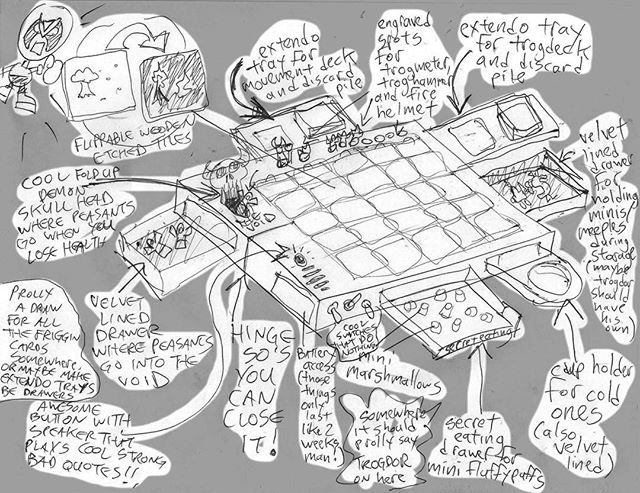 extendo
tray for
movement deck
and discard
pile
engraved
spots
for
trogmeter,
troghammer
and fire
helmet
extendo tray
for trogdeck
and discard
pile
FLIPPABLE WOODEN
ETCHED TILES
COOL FOLD UP
DEMON
SKULL HEAD
WHERE PEASANTS
GO WHEN YOU
LOSE HEALTH
THE
VOID
velvet
lined
drawer
for
holding
minis/
meeples
during
storage
maybe
trogdor
should
have
his
own
PROLLY
A DRAW
FOR ALL
THE FRIGGIN
CARDS
SOMEWHERE.
OR MAYBE MAKE
EXTENDO TRAYS
BE DRAWERS
VELVET
LINED
DRAWER
WHERE PEASANTS
GO INTO THE
VOID
AWESOME
BUTTON WITH
SPEAKER THAT
PLAYS COOL STRONG
BAD QUOTES!!
HINGE
SO'S
YOU
CAN
CLOSE
IT!
Battery
access
(those
things
only
last
like 2
weeks,
man!
COOL
SWITCHES
THAT DO
NOTHING
mini
marshmallows
secret eating
Somewhere
it should
prolly say
TROGDOR
on here
secret
eating
drawer for
mini fluffypuffs
cup holder
for cold
ones
(also velvet
lined)